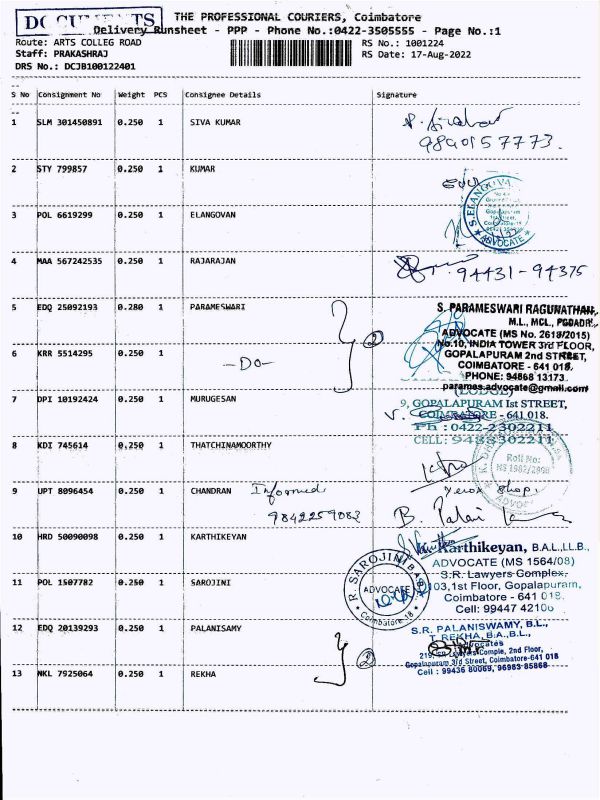 DOCUMENTS
THE PROFESSIONAL COURIERS, Coimbatore
Delivery Runsheet - PPP - Phone No.:0422-3505555 - Page No.:1
Route: ARTS COLLEG ROAD
RS No.: 1001224
Staff: PRAKASHRAJ
RS Date: 17-Aug-2022
DRS No.: DCJB100122401
S No Consignment No Weight PCS Consignee Details Signature
1 SLM 301450891 0.250 1 SIVA KUMAR
9840157773.
2 STY 799857 0.250 1 KUMAR
3 POL 6619299 0.250 1 ELANGOVAN
ADVOCATE
4 MAA 567242535 0.250 1 RAJARAJAN 94431-94375
5 EDQ 25092193 0.280 1 PARAMESWARI
S. PARAMESWARI RAGUNATHAN,
M.L., MCL, PGDADR.,
ADVOCATE (MS No. 2618/2015)
No.10, INDIA TOWER 3rd FLOOR,
GOPALAPURAM 2nd STREET,
COIMBATORE - 641 018.
PHONE: 94868 13173
parames.advocate@gmail.com
6 KRR 5514295 0.250 1 -DO- 2
7 DPI 10192424 0.250 1 MURUGESAN
(LODGE)
9, GOPALAPURAM Ist STREET,
COIMBATORE - 641 018.
Ph : 0422-2302211
CELL: 9488302211
8 KDI 745614 0.250 1 THATCHINAMOORTHY
Roll No:
MS 1982/2008
ADVOCATE
9 UPT 8096454 0.250 1 CHANDRAN Informed
9842259082
Xerox shop
B. Palani
10 HRD 50090098 0.250 1 KARTHIKEYAN
Karthikeyan, B.A.L.,LL.B.,
ADVOCATE (MS 1564/08)
S.R. Lawyers Complex,
103,1st Floor, Gopalapuram,
Coimbatore - 641 018.
Cell: 99447 42106
11 POL 1507782 0.250 1 SAROJINI
R. SAROJINI B.A.B.L
ADVOCATE
Coimbatore-18
12 EDQ 20139293 0.250 1 PALANISAMY
S.R. PALANISWAMY, B.L.,
T.REKHA, B.A.,B.L.,
Advocates
219, SR Lawyers Comple, 2nd Floor,
Gopalapuram 3rd Street, Coimbatore-641 018
Cell : 99436 80069, 96983 85868
2
13 NKL 7925064 0.250 1 REKHA